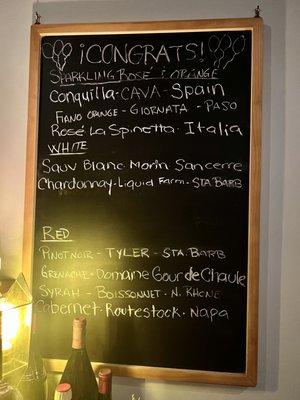 ¡CONGRATS!
SPARKLING ROSÉ & ORANGE
Conquilla · CAVA - Spain
FIANO ORANGE - GIORNATA - PASO
Rosé La Spinetta · Italia
WHITE
Sauv Blanc · Morin Sancerre
Chardonnay · Liquid Farm · STA. BARB
RED
PINOT NOIR - TYLER - STA. BARB
GRENACHE · Domaine Gour de Chaulé
SYRAH - BOISSONNET · N. RHONE
Cabernet · Routestock · NAPA